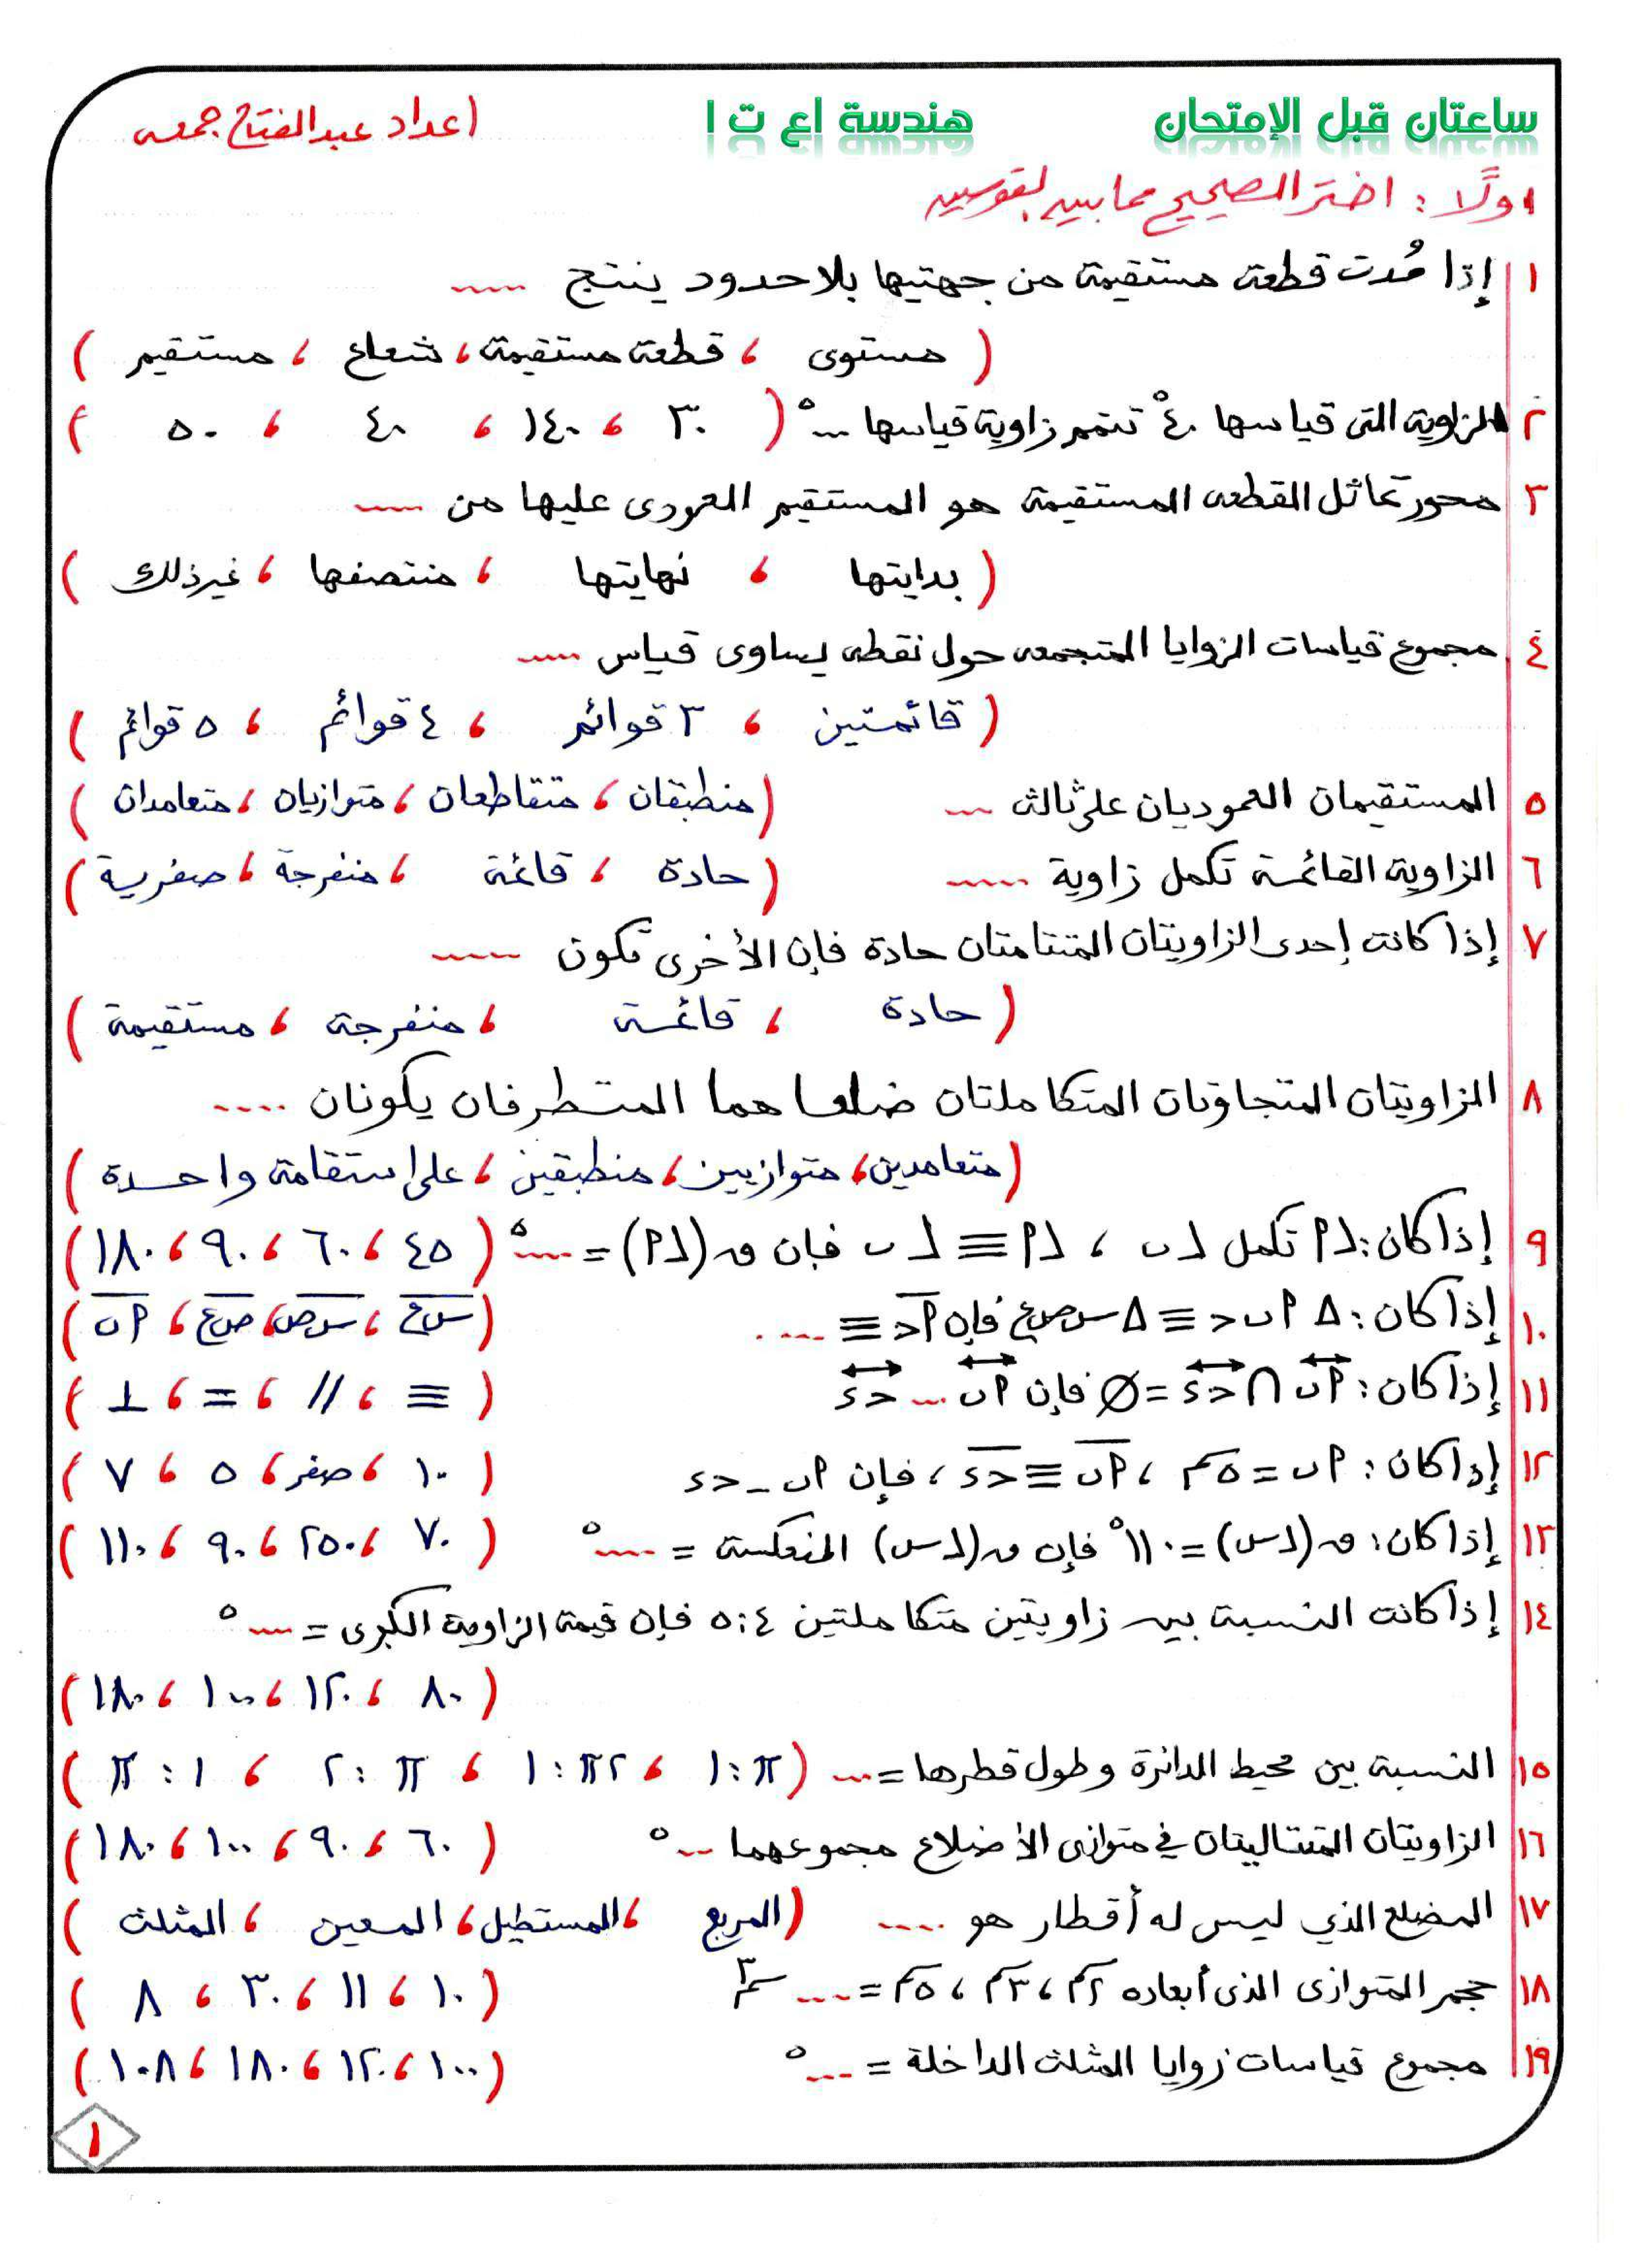 ساعتان قبل الإمتحان هندسة اع ت ا اعداد عبدالفتاح جمعه
اولًا : اختر الصحيح مما بين القوسين
١ إذا مُدت قطعة مستقيمة من جهتيها بلا حدود ينتج .....
( مستوى ، قطعة مستقيمة ، شعاع ، مستقيم )
٢ الزاوية التى قياسها ٤٠° تتمم زاوية قياسها ...° ( ٣٠ ، ١٤٠ ، ٤٠ ، ٥٠ )
٣ محور تماثل القطعه المستقيمة هو المستقيم العمودى عليها من .....
( بدايتها ، نهايتها ، منتصفها ، غير ذلك )
٤ مجموع قياسات الزوايا المتجمعه حول نقطه يساوى قياس .....
( قائمتين ، ٣ قوائم ، ٤ قوائم ، ٥ قوائم )
٥ المستقيمان العموديان على ثالث ... ( منطبقان ، متقاطعان ، متوازيان ، متعامدان )
٦ الزاوية القائمة تكمل زاوية ..... ( حادة ، قائمة ، منفرجة ، صفرية )
٧ إذا كانت إحدى الزاويتان المتتامتان حادة فإن الأخرى تكون .....
( حادة ، قائمة ، منفرجة ، مستقيمة )
٨ الزاويتان المتجاورتان المتكاملتان ضلعاهما المتطرفان يكونان ....
( متعامدين ، متوازيين ، منطبقين ، على استقامة واحدة )
٩ إذا كان : ∠أ تكمل ∠ب ، ∠أ ≡ ∠ب فإن ق(∠أ) = ....° ( ٤٥ ، ٦٠ ، ٩٠ ، ١٨٠ )
١٠ إذا كان : Δ أ ب ج ≡ Δ س ص ع فإن أج ≡ .... ( س ع ، س ص ، ص ع ، أ ب )
١١ إذا كان : أب ∩ ج د = ∅ فإن أب ... ج د ( ≡ ، // ، = ، ⊥ )
١٢ إذا كان : أب = ٥سم ، أب ≡ ج د ، فإن أب - ج د ( ١٠ ، صفر ، ٥ ، ٧ )
١٣ إذا كان : ق(∠س) = ١١٠° فإن ق(∠س) المنعكسة = ....° ( ٧٠ ، ٢٥٠ ، ٩٠ ، ١١٠ )
١٤ إذا كانت النسبة بين زاويتين متكاملتين ٥:٤ فإن قيمة الزاوية الكبرى = ...°
( ٨٠ ، ١٢٠ ، ١٠٠ ، ١٨٠ )
١٥ النسبة بين محيط الدائرة وطول قطرها = ... ( π : ١ ، ٢π : ١ ، π : ٢ ، ١ : π )
١٦ الزاويتان المتتاليتان في متوازى الأضلاع مجموعهما ...° ( ٦٠ ، ٩٠ ، ١٠٠ ، ١٨٠ )
١٧ المضلع الذي ليس له أقطار هو .... ( المربع ، المستطيل ، المعين ، المثلث )
١٨ حجم المتوازى الذى أبعاده ٢سم ، ٣سم ، ٥سم = .... سم٣ ( ١٠ ، ١١ ، ٣٠ ، ٨ )
١٩ مجموع قياسات زوايا المثلث الداخلة = ...° ( ١٠٠ ، ١٢٠ ، ١٨٠ ، ١٠٨ )
١